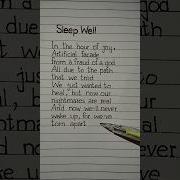 Sleep Well
In the hour of joy,
Artificial facade
from a fraud of a god
All due to the path
that we trod
We just wanted to
heal, but now our
nightmares are real
And now we'll never
wake up, for we're
torn apart